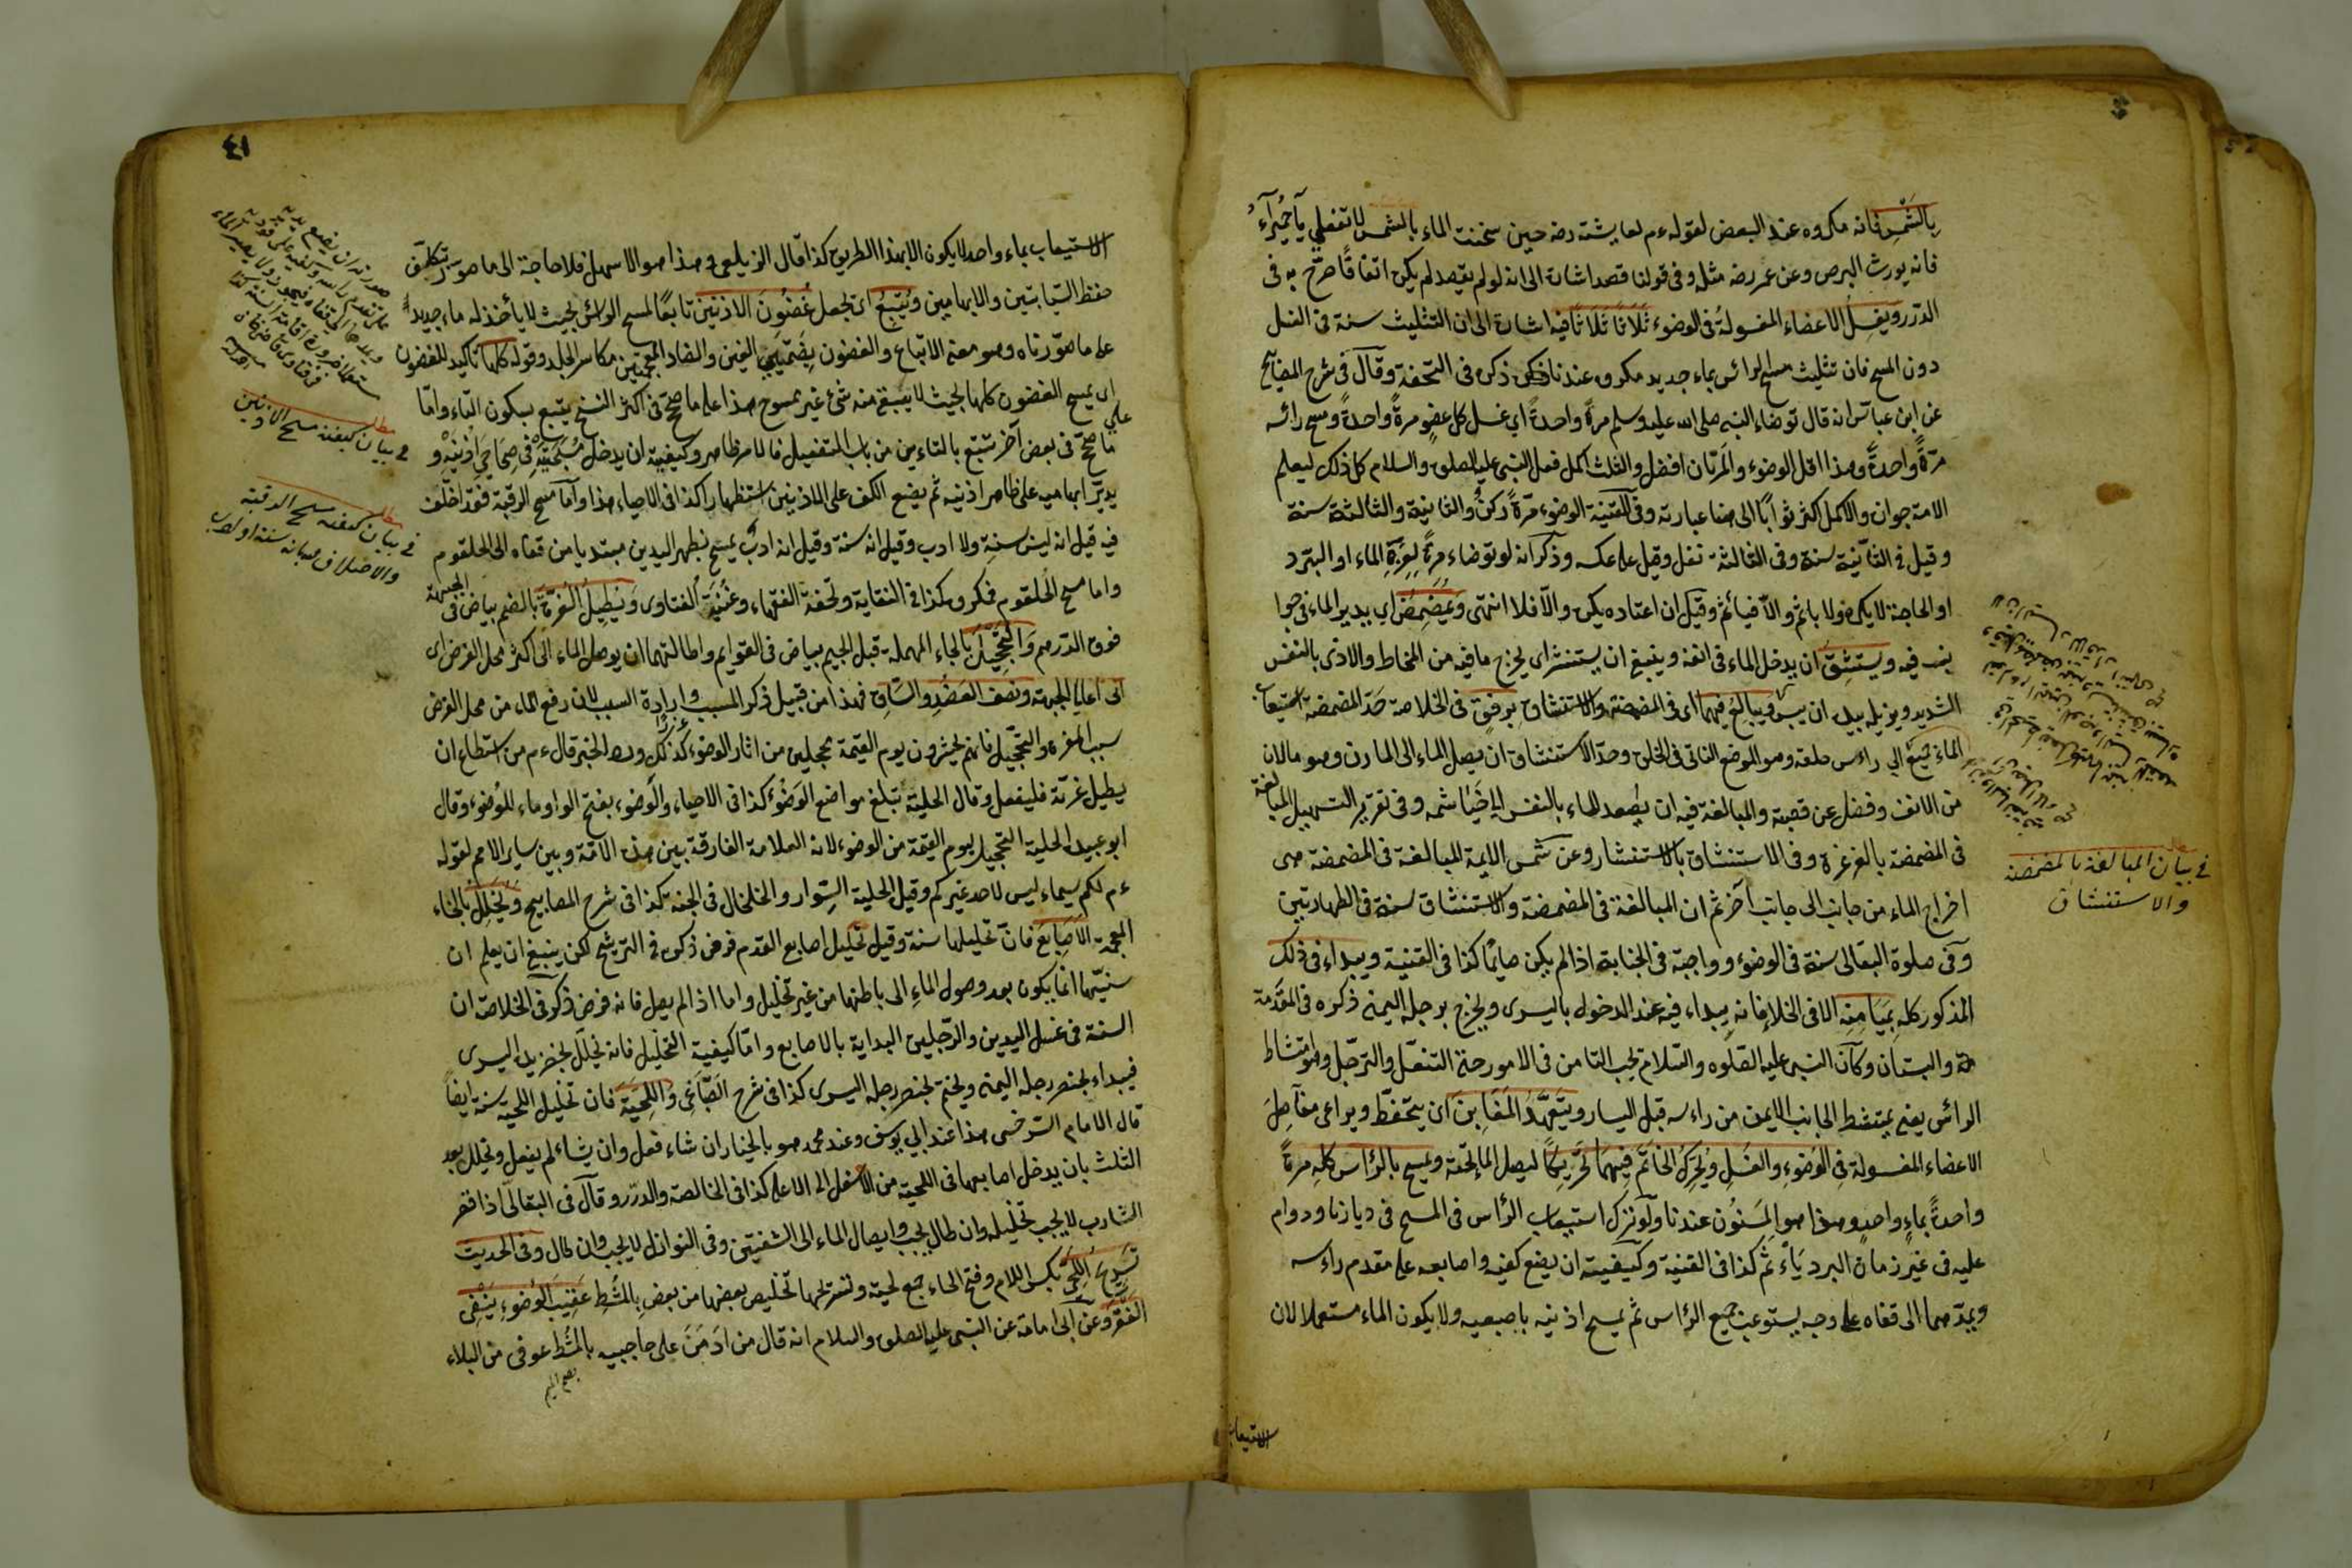 بِالشَّمْسِ فانه مكروه عند البعض لقوله ءم لعايشة رضه حين سخنت الماء بالشمس لا تفعلي يا حُمَيْرَآءُ
فانه يورث البرص وعن عمر رضه مثله وفى قولنا قصد اشارة الى انه لو لم يقصد لم يكن اتفاقًا صرّح به فى
الدّرر ويغسِلُ الاعضاء المغسولةُ فى الوضوء ثلاثًا ثلاثًا فيه اشارة الى ان التثليث سنة فى الغسل
دون المسح فان تثليث مسح الرائس بماء جديد مكروه عندنا ذكره فى التحفة وقآل فى شرح المصابيح
عن ابن عباس انه قال توضاء النبى صلى الله عليه وسلم مرةً واحدةً اي غسل كل عضو مرةً واحدةً ومسح رائسه
مرّةً واحدةً وهذا اقل الوضوء والمرّتان افضل والثلث اكمل فعل النبى عليه الصلوة والسلام كل ذلك ليعلم
الامة جوازه والاكمل اكثر ثوابًا الى هنا عبارته وفى القنية الوضوء مرّةً ركنٌ والثانية والثالثة سنة
وقيل فى الثانية سنة وفى الثالثة نفل وقيل على عكسه وذكر انه لو توضاء مرةً لِعِزَّةِ الماء او البرد
او الحاجة لا يكره ولا ياثم والّا فيائم وقيل ان اعتاده يكره والّا فلا انتهى وَيُمَضْمِضُ اي يدير الماء فى جوا
نب فيه ويستنشِقُ ان يدخل الماء فى انفه وينبغى ان يستنثر اى يخرج ما فيه من المخاط والاذى بالنفس
الشديد ويزيله بيده ان يبس ويبالغُ فيهما اى فى المضمضة والاستنشاق برفق فى الخلاصة حدّ المضمضة استيعاب
الماء جميع الى رائس حلقه وهو الموضع الناتى فى الحلق وحدّ الاستنشاق ان يصل الماء الى المارن وهو ما لان
من الانف وفضل عن قصبة والمبالغة فيه ان يصعد الماء بالنفس الى خياشمه وفى تقرير التسهيل المبالغة
فى المضمضة بالغرغرة وفى الاستنشاق بالاستنثار وعن شمس الايمة المبالغة فى المضمضة هى
اخراج الماء من جانب الى جانب آخر ثم ان المبالغة فى المضمضة والاستنشاق سنة فى الطهارتين
وفى صلوة البقالى سنة فى الوضوء وواجبة فى الجنابة اذا لم يكن صايمًا كذا فى القنية ويبداء فى ذلك
المذكور كله بِمَيَامِنِه الا فى الخلاء فانه يبداء فيه عند الدخول باليسرى ويخرج برجله اليمنى ذكره فى المقدمة
والبستان وكان النبى عليه الصلوة والسّلام يحب التيامن فى الامور حتى التنعّل والترجّل والامتشاط
الرائس يعنى يمتشط الجانب الايمن من راءسه قبل اليسار ويَتَعَهَّدُ المَغَابِنَ ان يتحفّظ ويراعى مفاصِلَ
الاعضاء المغسولة فى الوضوءِ والغسلِ ويُحَرِّكُ الخاتَمَ فِيهِمَا تَحْرِيكًا ليصل الماء تحته ويمسح بالرّأس كله مرةً
واحدةً بماءٍ واحدٍ وهذا هو المَسنُون عندنا ولو ترك استيعاب الرّأس فى المسح فى ديارنا ودوام
عليه فى غير زمان البرد ياءثم كذا فى القنية وكيفيته ان يضع كفيه واصابعه على مقدم راءسه
ويمدّهما الى قفاه على وجه يستوعب جميع الرّاس ثم يمسح اذنيه باصبعيه ولا يكون الماء مستعملا لان
الاستيعاب
فى بيان المبالغة بالمضمضة
والاستنشاق
٤١
الاستيعاب بماء واحد لا يكون الا بهذا الطريق كذا قال الزيلعى وهذا هو الاسهل فلا حاجة الى ما هو يتكلّف
حفظ السّبّابتين والابهامين ويُتبِعُ اى يجعل غُضُونَ الاذنين تابعًا لمسح الرائس بحيث لا يأخذ له ماء جديدًا
على ما صوّرناه وهو معنى الاتباع والغضون بضمّتين الغين والضاد المعجمتين مكاسر الجلد وقوله كلها تأكيد للغضون
اى يمسح الغضون كلها بحيث لا يبقى منه شئ غير ممسوح هذا على ما صحّ فى اكثر النسخ يتبع بسكون التاء وامّا
على ما صحّ فى بعض آخر تتبّع بالتاءين من باب التفعيل فالامر ظاهر وكيفيته ان يدخل مُسَبّحَتَيْه فى صِمَاخَيْ اُذُنَيْه و
يديرَ ابهاميه على ظاهر اذنيه ثم يضع الكف على الاذنين استظهارًا كذا فى الاحياء هذا وآمّا مسح الرقبة فقد اختلف
فيه قيل انه ليس سنةٍ ولا ادب وقيل انه سنة وقيل انه ادبٌ يمسح بظهر اليدين مبتديا من قفاه الى الحلقوم
واما مسح الحلقوم فمكروه كذا فى النقاية وتحفة الفقهاء وغنية الفتاوى وَيُطِيلُ الغُرَّةَ بالضم بياض فى الجبهة
فوق الدرهم وَالتَّحْجِيلَ بالحاء المهملة قبل الجيم بياض فى القوايم واطالتهما ان يوصل الماء الى اكثر محل الفرض اى
الى اعلى الجبهة ونصف العَضُدِ والسَّاقِ فهذا من قبيل ذكر المسبب وارادة السبب لان رفع الماء من محل الفرض
سبب الغرة والتحجيل فانهم يحشرون يوم القيمة غرًّا محجلين من اثار الوضوء كذلك ورد الخبر قال ءم من استطاع ان
يطيل غرته فليفعل وقال الحلية تبلغ مواضع الوَضُوْءِ كذا فى الاحياء والوضوء بفتح الواو ماء للوُضوء وقال
ابو عبيد الحلية التحجيل يوم القيمة من الوضوء لانه العلامة الفارقة بين هذه الامّة وبين ساير الامم لقوله
ءم لكم سيماء ليس لاحد غيركم وقيل الحلية السِّوار والخلخال فى الجنة كذا فى شرح المصابيح وَيُخَلِّلُ بالخاء
المعجمة الاَصَابِعَ فانّ تخليلها سنة وقيل تخليل اصابع القدم فرض ذكره فى الترشيح لكن ينبغى ان يعلم ان
سنيّتهما انما يكون بعد وصول الماءِ الى باطنها من غير تخليل واما اذا لم يصل فانه فرض ذكره فى الخلاصة ان
السنة فى غسل اليدين والرّجلين البداية بالاصابع وامّا كيفية التخليل فانه يخلّل بخنصر يده اليسرى
فيبداء بخنصر رجله اليمنى ويختم بخنصر رجله اليسرى كذا فى شرح الصّبّاغى وَاللِّحْيَةَ فان تخليل اللحية سنة ايضًا
قال الامام السّرخسى هذا عند ابى يوسف وعند محمد هو بالخيار ان شاء فعل وان يشاء لم يفعل ويخلل بعد
الثلث بان يدخل اصابعهما فى اللحية من الاسفل الى الاعلى كذا فى الخالصة والدرر وقآل فى البقالى اذا قصر
الشارب لا يجب تخليله وان طال يجب وايصال الماء الى الشفيتين وفى النوازل لا يجب وان طال وفى الحديث
تَسْرِيحُ اللِّحَى بكسر اللام وفتح الحاء جمع لحية وتسريحها تخليص بعضها من بعض بِالمُشْطِ عَقِيبَ الوُضوءِ يَنْفِى
الفَقْرَ وعن ابى امامة عن النبى عليه الصلوة والسلام انه قال من ادْمَنَ على حاجبيه بالمُشْط عوفى من البلاء
بضم الميم
مطلب
فى بيان كيفية مسح الاذنين
مطلب
فى بيان كيفية مسح الرقبة
والاختلاف ببيانه سنة او ادب